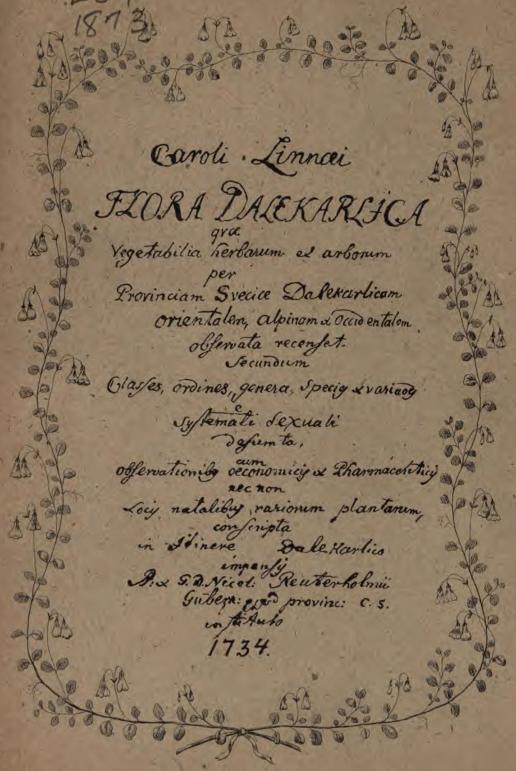 1873
Caroli . Linnæi
FLORA DALEKARLICA
qvæ
Vegetabilia herbarum et arborum
per
Provinciam Sveciæ Dalekarlicam
orientalem, alpinam & occidentalem
observata recenset.
secundum
Classes, ordines, genera, species & varietates
e
systemati sexuali
desumta,
cum
observationibus oeconomicis & Pharmaceuticis
nec non
Locis natalibus rariorum plantarum,
conscripta
in Itinere Dalekarlico
impensis
Nicol: Reuterholmii
provinc: C. S.
instituto
1734.